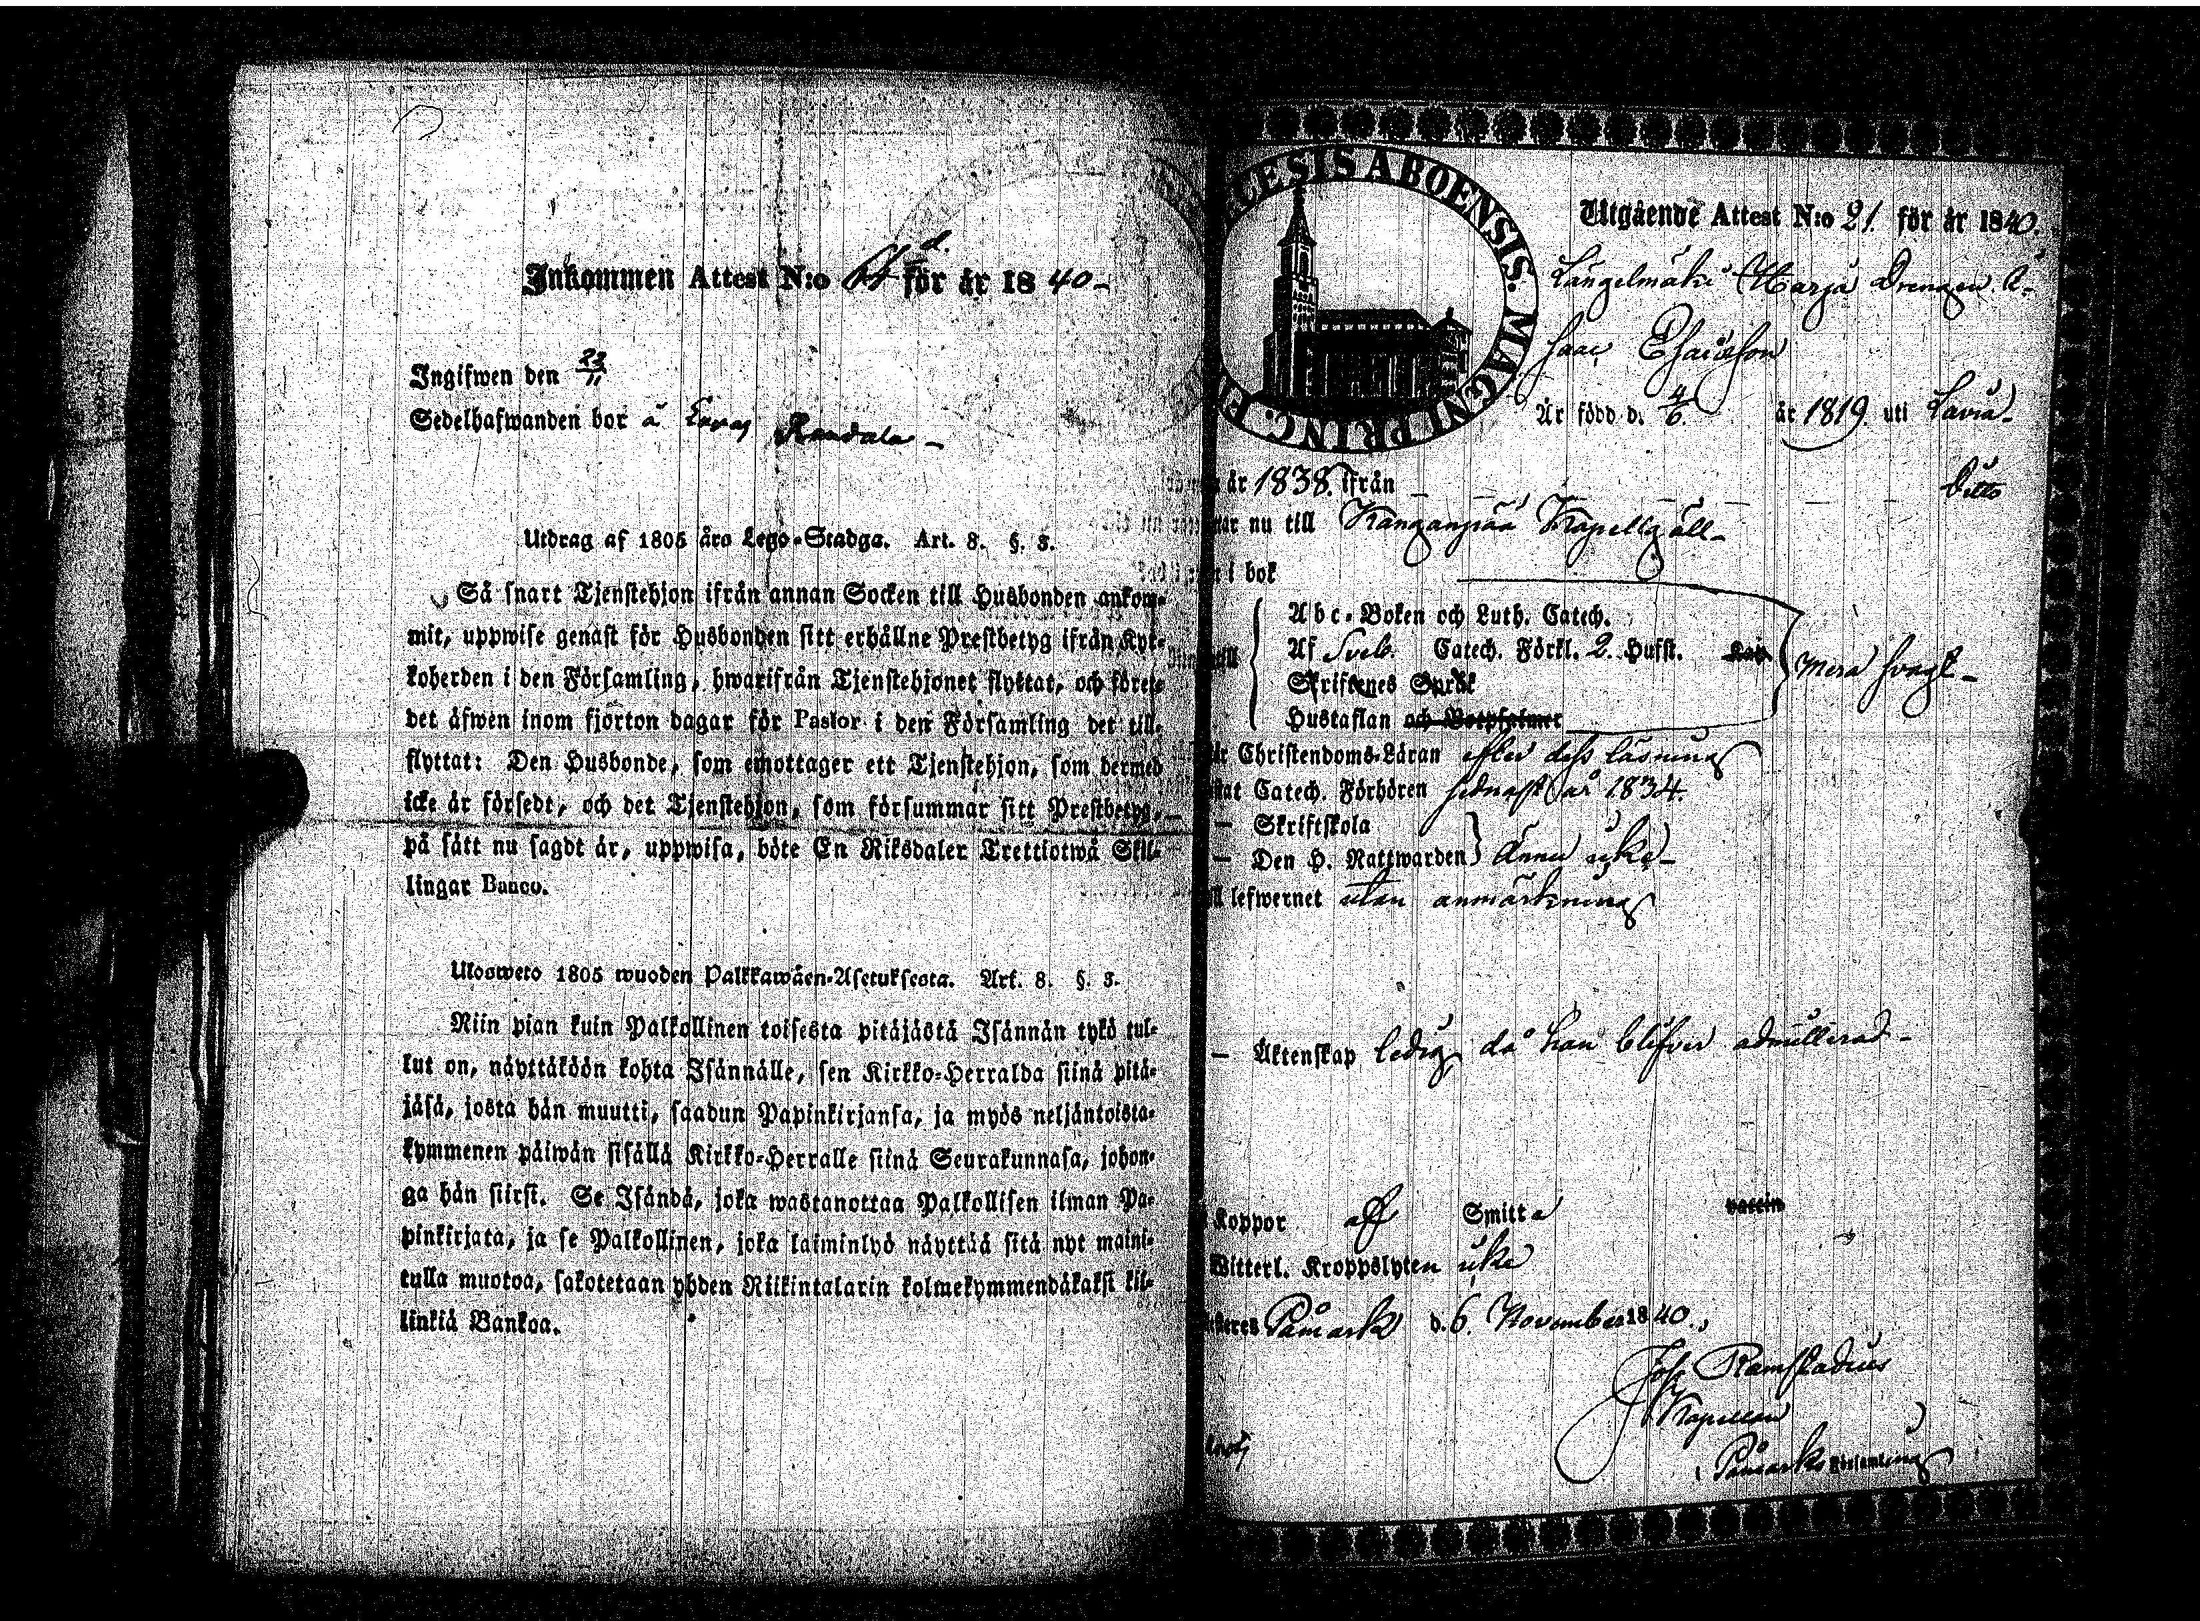 Inkommen Attest N:o för år 1840-
Ingifwen den 23/11
Sedelhafwanden bor å
Utdrag af 1805 års Lego-Stadga. Art. 8. §. 3.
Så snart Tjenstehjon ifrån annan Socken till Husbonden ankom-
mit, uppwise genast för Husbonden sitt erhållne Prestbetyg ifrån Kyr-
koherden i den Församling, hwarifrån Tjenstehjonet flyttat, och förete
det äfwen inom fjorton dagar för Pastor i den Församling det till-
flyttat: Den Husbonde, som emottager ett Tjenstehjon, som dermed
icke är försedt, och det Tjenstehjon, som försummar sitt Prestbetyg,
på sätt nu sagdt är, uppwisa, böte En Riksdaler Trettiotwå Skil-
lingar Banco.
Ulosweto 1805 wuoden Palkkawäen-Asetuksesta. Art. 8. §. 3.
Niin pian kuin Palkollinen toisesta pitäjästä Isännän tykö tul-
lut on, näyttäköön kohta Isännälle, sen Kirkko-Herralda siinä pitä-
jäsä, josta hän muutti, saadun Papinkirjansa, ja myös neljäntoista-
kymmenen päiwän sisällä Kirkko-Herralle siinä Seurakunnasa, johon-
ga hän siirsi. Se Isändä, joka wastanottaa Palkollisen ilman Pa-
pinkirjata, ja se Palkollinen, joka laiminlyö näyttää sitä nyt maini-
tulla muotoa, sakotetaan yhden Riikintalarin kolmekymmendäkaksi kil-
linkiä Bankoa.
CESIS ABOENSIS. MAGNI PRINC. F
Utgående Attest N:o 21. för år 1840.
Längelmäki Marjä Drengen
Isaac Esaiasson
Är född d. 4/6. år 1819. uti Lavia-
år 1838. ifrån Ditto
nu till Kangaspää Kapellgäll-
i bok
Abc-Boken och Luth. Catech.
Af Sveb. Catech. Förkl. 2. Hufst.
Skriftenes Språk
Hustaflan och Botpsalmer
mera svagt-
Christendoms-Läran efter dess läsning
Catech. Förhören sednast år 1834.
- Skriftskola
- Den H. Nattwarden
ännu icke-
lefwernet utan anmärkning
- Äktenskap ledig, då han blifver admitterad-
Koppor aff Smitta vaccin
Witterl. Kroppslyten icke
Påmark d. 6. November 1840.,
Jos. Ramstadius
Kapellan
i Påmarks Församling